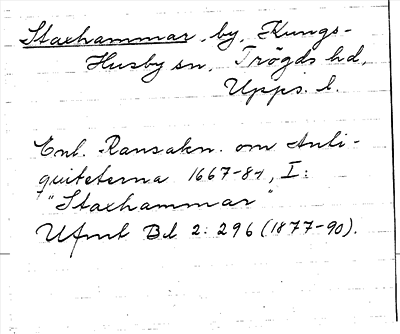 Staxhammar, by, Kungs-
Husby sn, Trögds hd,
Upps. l.
Enl. Ransakn. om Anti-
quiteterna 1667-84, I:
"Staxhammar"
Ufmt Bd 2: 296 (1877-90).